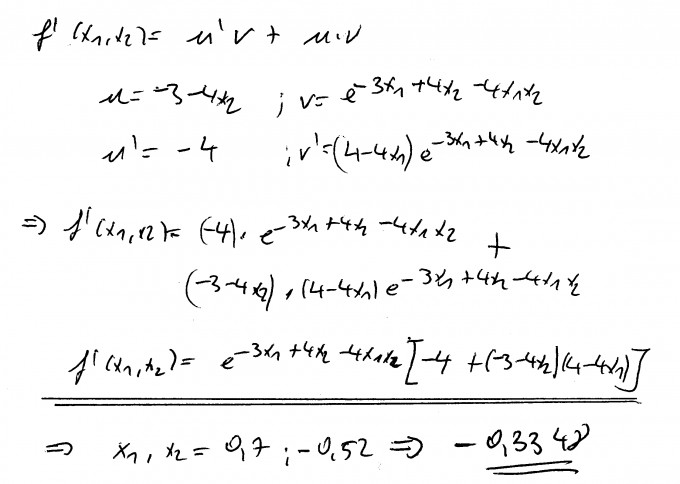 f' (x₁,x₂)= u'v + u·v
u= -3-4x₂ ; v= e^-3x₁+4x₂-4x₁x₂
u'= -4 ; v'=(4-4x₁) e^-3x₁+4x₂-4x₁x₂
=> f'(x₁,x₂)= (-4)· e^-3x₁+4x₂-4x₁x₂ +
(-3-4x₂)·(4-4x₁) e^-3x₁+4x₂-4x₁x₂
f'(x₁,x₂)= e^-3x₁+4x₂-4x₁x₂ [-4 +(-3-4x₂)(4-4x₁)]
=> x₁, x₂ = 0,7 ; -0,52 => - 0,3348